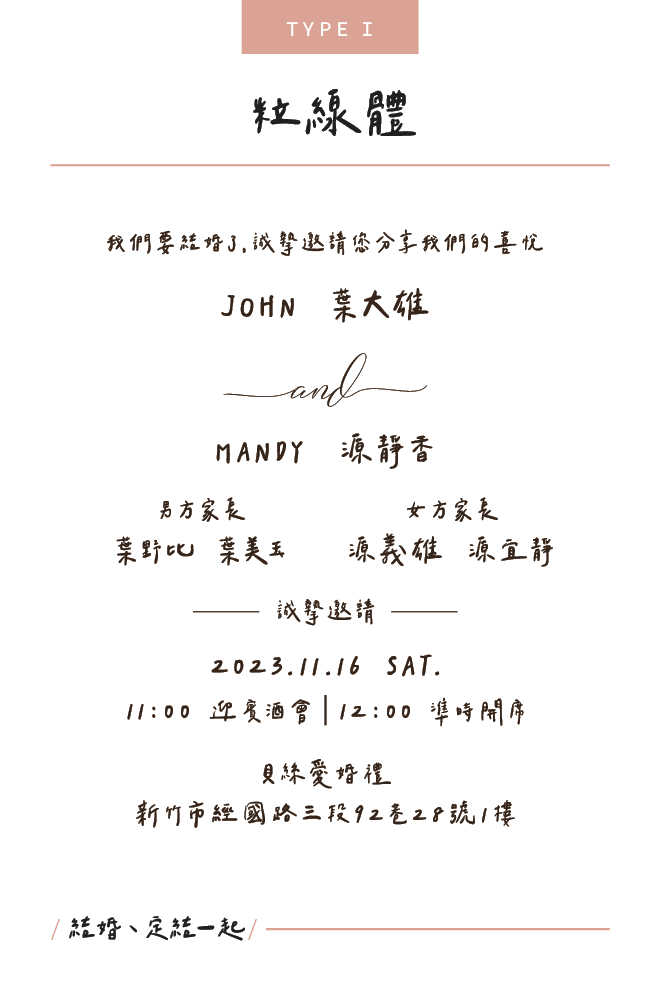 TYPE I
粒線體
我們要結婚了,誠摯邀請您分享我們的喜悅
JOHN 葉大雄
and
MANDY 源靜香
男方家長 女方家長
葉野比 葉美玉 源義雄 源宜靜
誠摯邀請
2023.11.16 SAT.
11:00 迎賓酒會|12:00 準時開席
貝絲愛婚禮
新竹市經國路三段92巷28號1樓
/結婚、定結一起/